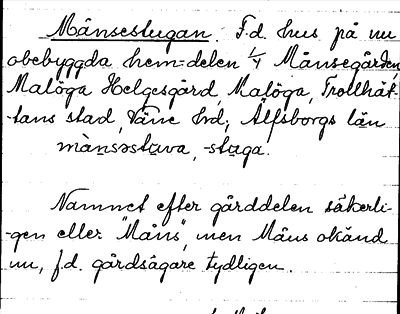 Månsestugan. F.d. hus på nu
obebyggda hem=delen 1/4 Månsegården,
Malöga Helgesgård, Malöga, Trollhät-
tans stad, Väne hrd; Älfsborgs län
mànsəstava, -staga.
Namnet efter gårddelen säkerli-
-gen eller "Måns", men Måns okänd
nu, f.d. gårdsägare tydligen.